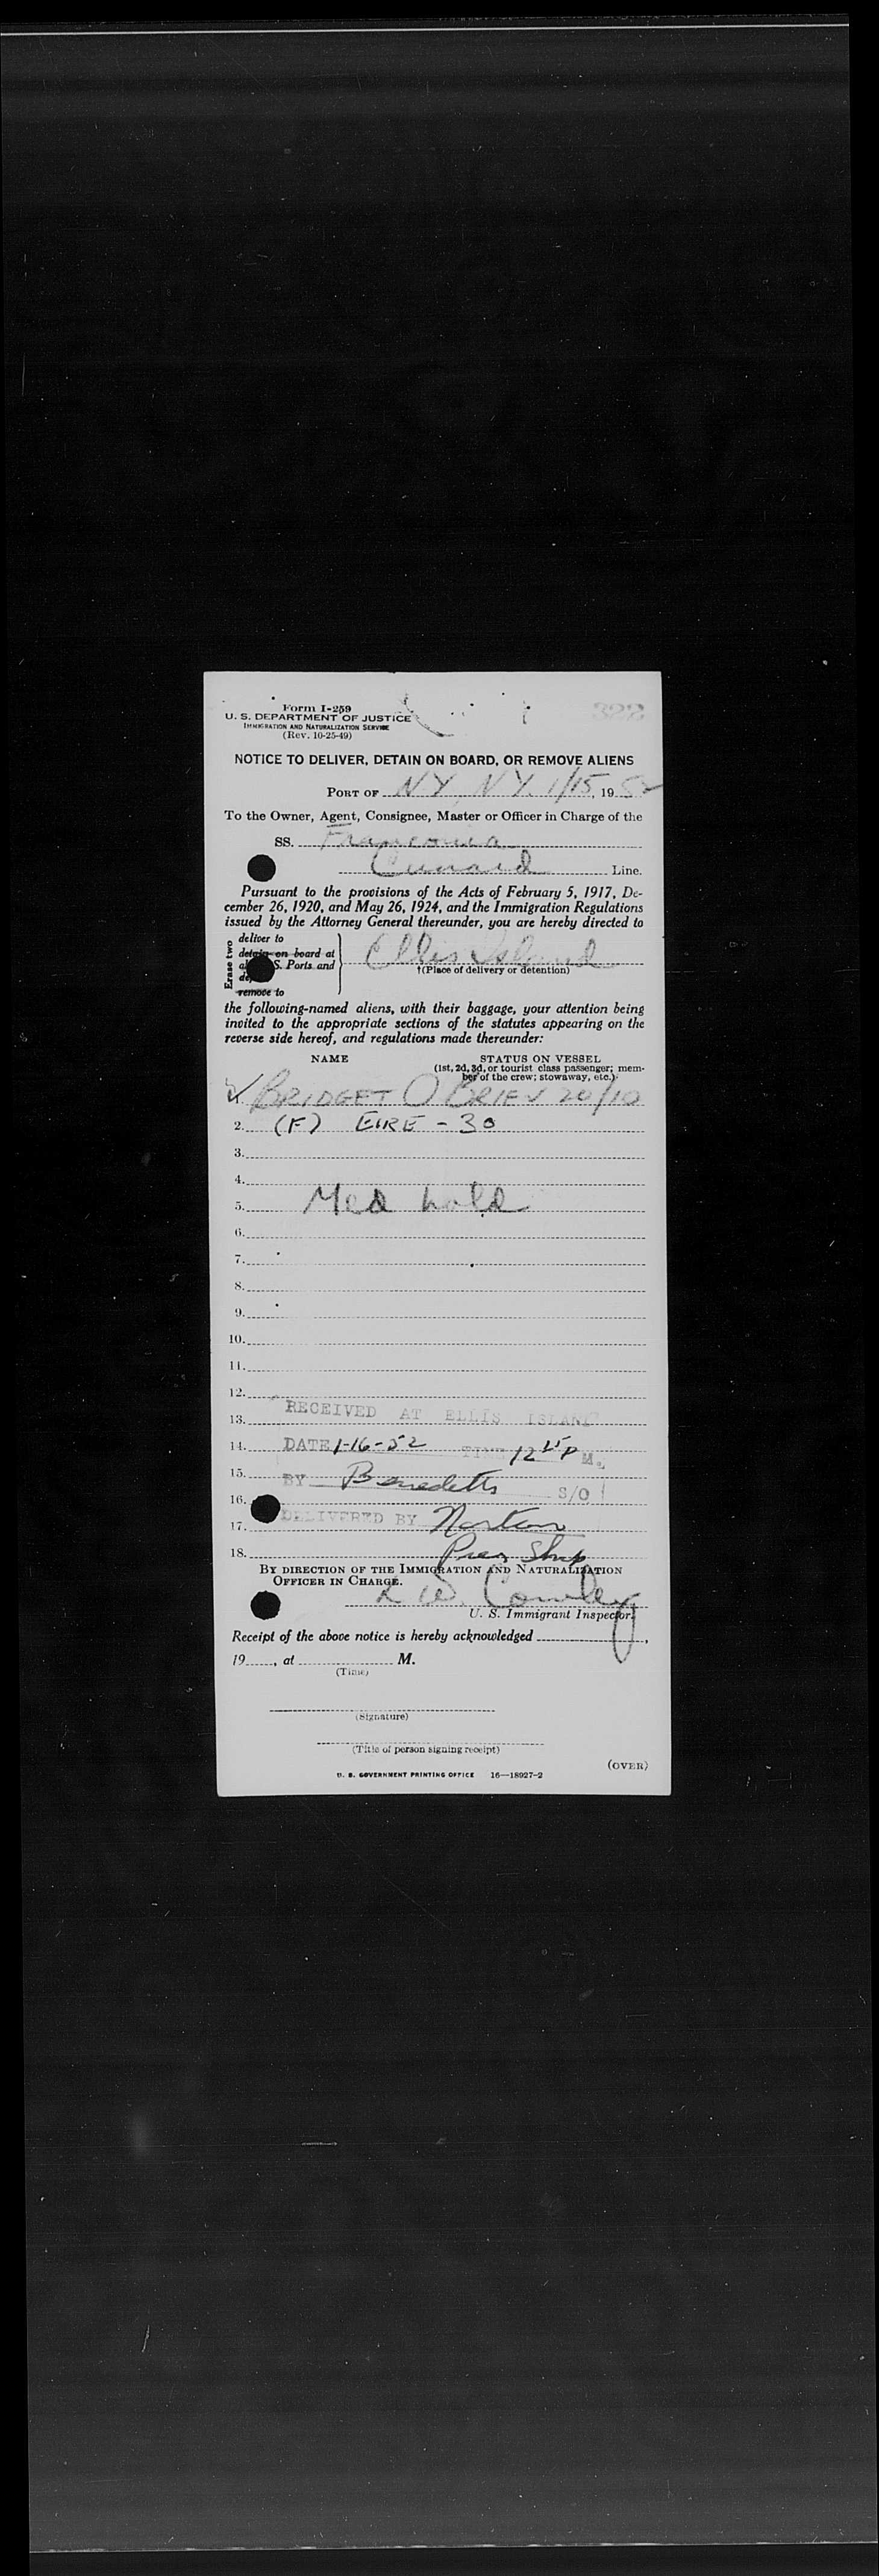 Form I-259
U. S. DEPARTMENT OF JUSTICE
IMMIGRATION AND NATURALIZATION SERVICE
(Rev. 10-25-49)
322
NOTICE TO DELIVER, DETAIN ON BOARD, OR REMOVE ALIENS
PORT OF NY, NY 1/15, 1952
To the Owner, Agent, Consignee, Master or Officer in Charge of the
SS. Franconia
Cunard Line.
Pursuant to the provisions of the Acts of February 5, 1917, De-
cember 26, 1920, and May 26, 1924, and the Immigration Regulations
issued by the Attorney General thereunder, you are hereby directed to
Erase two
deliver to
detain on board at
S. Ports and
remove to
Ellis Island
†(Place of delivery or detention)
the following-named aliens, with their baggage, your attention being
invited to the appropriate sections of the statutes appearing on the
reverse side hereof, and regulations made thereunder:
NAME STATUS ON VESSEL
(1st, 2d, 3d, or tourist class passenger; mem-
ber of the crew; stowaway, etc.)
1. BRIDGET O BRIEN 20/10
2. (F) EIRE - 30
3.
4.
5. Med hold
6.
7.
8.
9.
10.
11.
12.
13. RECEIVED AT ELLIS ISLAND
14. DATE 1-16-52 TIME 12 15 P M.
15. BY Benedetto S/O
16.
17. DELIVERED BY Norton
18.
BY DIRECTION OF THE IMMIGRATION AND NATURALIZATION
OFFICER IN CHARGE.
U. S. Immigrant Inspector.
Receipt of the above notice is hereby acknowledged,
19, at M.
(Time)
(Signature)
(Title of person signing receipt)
(OVER)
U. S. GOVERNMENT PRINTING OFFICE 16—18927-2